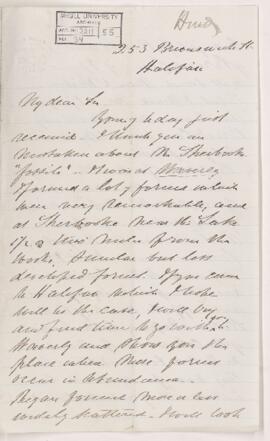 McGILL UNIVERSITY
ARCHIVES
ACC. NO. 2211
REF. 34
55
253 Brunswick St
Halifax
My dear Sir
Yours to day just
received. I think you are
mistaken about the Sherbrooke
"fossils". It was at Waverly
I found a lot of forms which
were very remarkable, and
at Sherbrooke near the Lake
1/2 a mile from the
works, similar but less
developed forms. If you come
to Halifax which I hope
will be the case, I will try
and find time to go with you to
Waverly and show you the
place where these forms
occur in abundance.
forms more or less
widely scattered. I will look